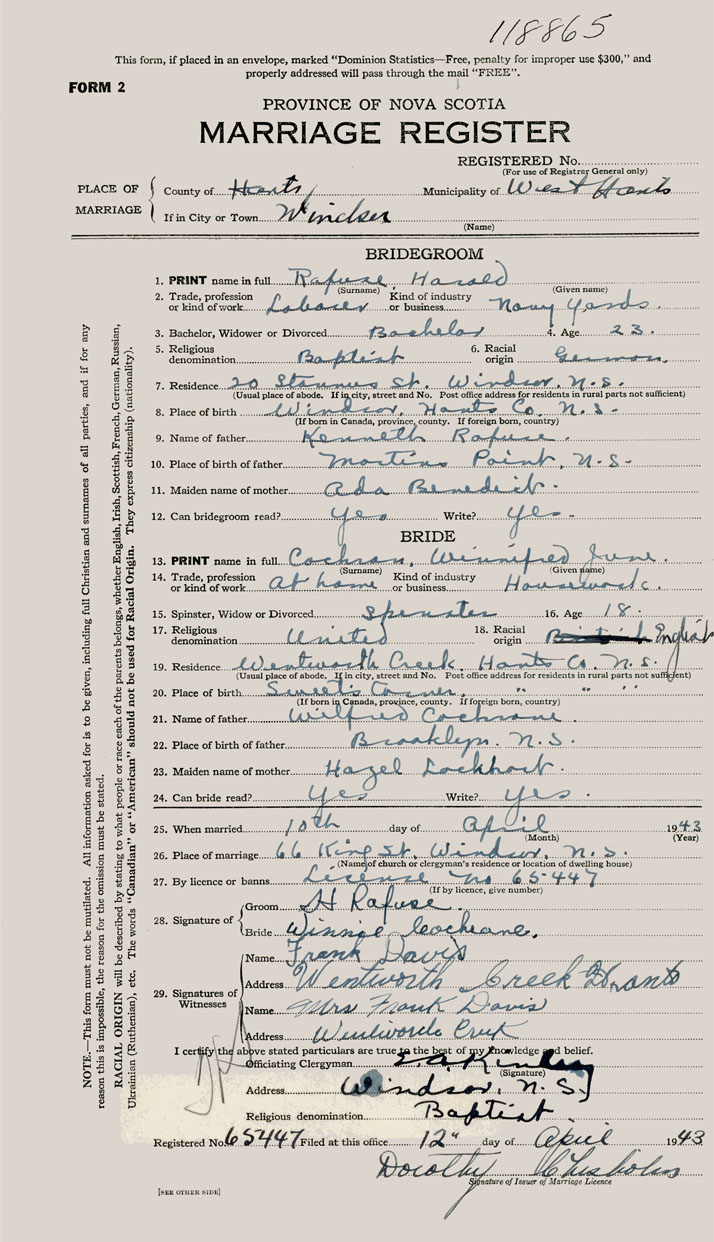 118865
This form, if placed in an envelope, marked “Dominion Statistics—Free, penalty for improper use $300,” and
properly addressed will pass through the mail “FREE”.
FORM 2
PROVINCE OF NOVA SCOTIA
MARRIAGE REGISTER
REGISTERED No.
(For use of Registrar General only)
PLACE OF MARRIAGE
County of Hants Municipality of West Hants
If in City or Town Windsor
(Name)
BRIDEGROOM
1. PRINT name in full Rafuse, Harold
(Surname) (Given name)
2. Trade, profession or kind of work Laborer Kind of industry or business Navy Yards.
3. Bachelor, Widower or Divorced Bachelor 4. Age 23.
5. Religious denomination Baptist 6. Racial origin German.
7. Residence 20 Stannus St. Windsor, N.S.
(Usual place of abode. If in city, street and No. Post office address for residents in rural parts not sufficient)
8. Place of birth Windsor, Hants Co. N.S.
(If born in Canada, province, county. If foreign born, country)
9. Name of father Kenneth Rafuse.
10. Place of birth of father Martins Point, N.S.
11. Maiden name of mother Ada Benedict.
12. Can bridegroom read? Yes Write? Yes-
BRIDE
13. PRINT name in full Cochran, Winnifred June.
(Surname) (Given name)
14. Trade, profession or kind of work At home Kind of industry or business Housework.
15. Spinster, Widow or Divorced Spinster 16. Age 18.
17. Religious denomination United 18. Racial origin English
19. Residence Wentworth Creek, Hants Co. N.S.
(Usual place of abode. If in city, street and No. Post office address for residents in rural parts not sufficient)
20. Place of birth Sweet's Corner, " " "
(If born in Canada, province, county. If foreign born, country)
21. Name of father Wilfred Cochrane.
22. Place of birth of father Brooklyn, N.S.
23. Maiden name of mother Hazel Lockhart.
24. Can bride read? Yes Write? Yes.
25. When married 10th day of April 1943
(Month) (Year)
26. Place of marriage 66 King St. Windsor, N.S.
(Name of church or clergyman's residence or location of dwelling house)
27. By licence or banns License No 65447
(If by licence, give number)
28. Signature of
Groom H Rafuse.
Bride Winnie Cochrane.
29. Signatures of Witnesses
Name Frank Davis
Address Wentworth Creek Hants
Name Mrs Frank Davis
Address Wentworth Creek
I certify the above stated particulars are true to the best of my knowledge and belief.
Officiating Clergyman
(Signature)
Address Windsor, N.S.
Religious denomination Baptist.
Registered No. 65447 Filed at this office 12" day of April 1943
Dorothy Chisholm
Signature of Issuer of Marriage Licence
[SEE OTHER SIDE]
NOTE.—This form must not be mutilated. All information asked for is to be given, including full Christian and surnames of all parties, and if for any
reason this is impossible, the reason for the omission must be stated.
RACIAL ORIGIN will be described by stating to what people or race each of the parents belongs, whether English, Irish, Scottish, French, German, Russian,
Ukrainian (Ruthenian), etc. The words “Canadian” or “American” should not be used for Racial Origin. They express citizenship (nationality).